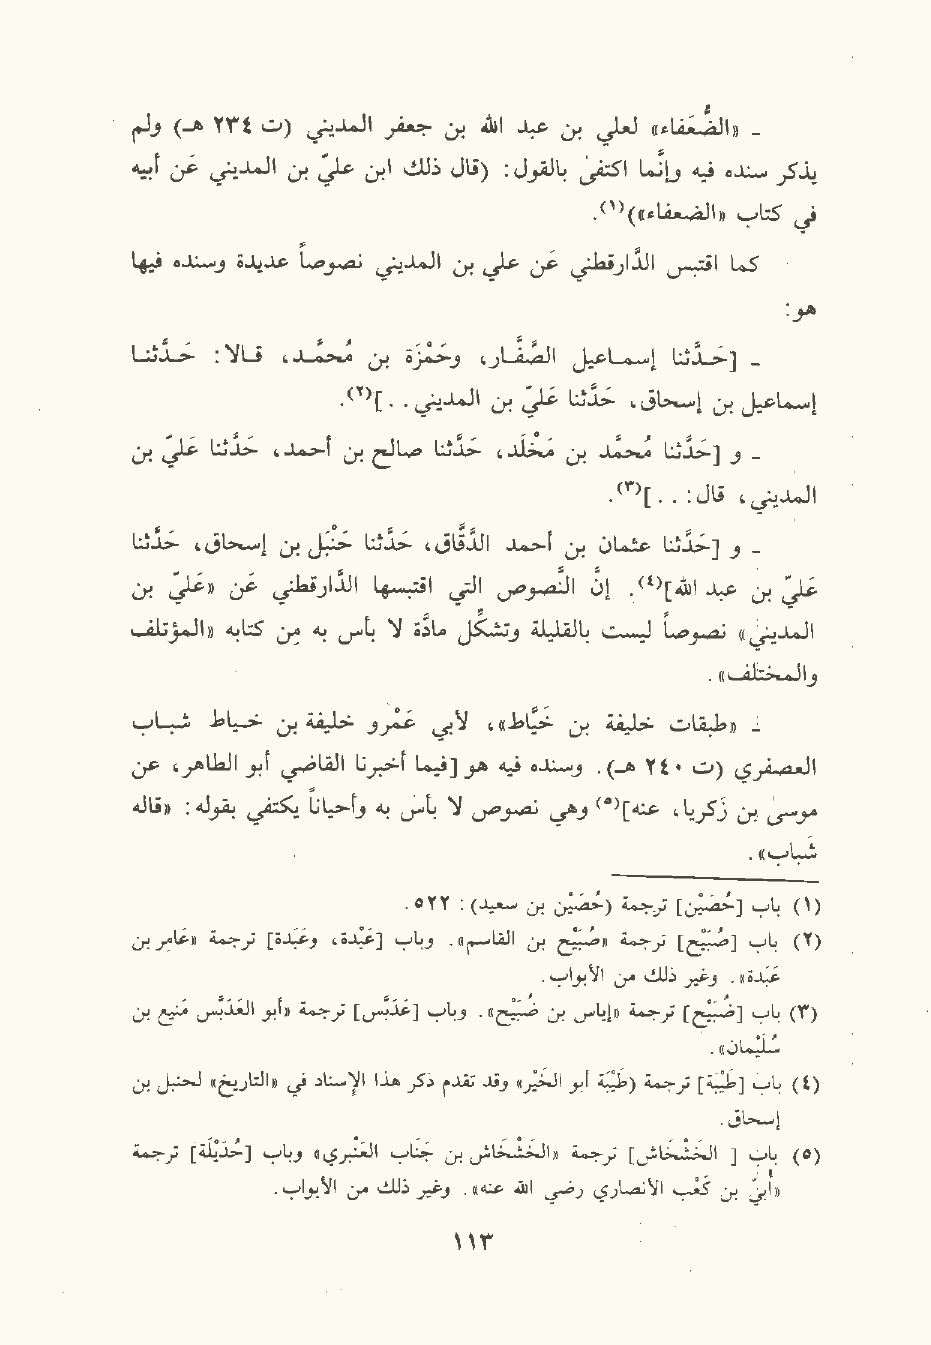 ـ «الضُّعَفاء» لعلي بن عبد الله بن جعفر المديني (ت ٢٣٤ هـ) ولم
يذكر سنده فيه وإنَّما اكتفىٰ بالقول: (قال ذلك ابن عليّ بن المديني عَن أبيه
في كتاب «الضعفاء»)(١).
كما اقتبس الدَّارقطني عَن علي بن المديني نصوصاً عديدة وسنده فيها
هو:
ـ [حَـدَّثنا إسمـاعيل الصَّفَّـار، وحَمْزَة بن مُحمَّـد، قـالا: حَـدَّثنـا
إسماعيل بن إسحاق، حَدَّثنا عَليّ بن المديني. .](٢).
ـ و [حَدَّثنا مُحمَّد بن مَخْلَد، حَدَّثنا صالح بن أحمد، حَدَّثنا عَليّ بن
المديني، قال: . .](٣).
ـ و [حَدَّثنا عثمان بن أحمد الدَّقَّاق، حَدَّثنا حَنْبَل بن إسحاق، حَدَّثنا
عَليّ بن عبد الله](٤). إنَّ النَّصوص التي اقتبسها الدَّارقطني عَن «عَليّ بن
المديني» نصوصاً ليست بالقليلة وتشكِّل مادَّة لا بأس به مِن كتابه «المؤتلف
والمختلف».
ـ «طبقات خليفة بن خَيَّاط»، لأبي عَمْرو خليفة بن خيـاط شبـاب
العصفري (ت ٢٤٠ هـ). وسنده فيه هو [فيما أخبرنا القاضي أبو الطاهر، عن
موسىٰ بن زَكريا، عنه](٥) وهي نصوص لا بأس به وأحياناً يكتفي بقوله: «قاله
شَباب».
(١) باب [حُصَيْن] ترجمة (حُصَيْن بن سعيد): ٥٢٢.
(٢) باب [صُبَيْح] ترجمة «صُبَيْح بن القاسم». وباب [عَبْدَة، وعَبَدَة] ترجمة «عَامِر بن
عَبَدة». وغير ذلك من الأبواب.
(٣) باب [صُبَيْح] ترجمة «إياس بن صُبَيْح». وباب [عَدَبَّس] ترجمة «أبو العَدَبَّس مَنيع بن
سُلَيْمان».
(٤) باب [طَيْبَة] ترجمة (طَيْبَة أبو الخَيْر» وقد تقدم ذكر هذا الإسناد في «التاريخ» لحنبل بن
إسحاق.
(٥) باب [ الخَشْخَاش] ترجمة «الخَشْخَاش بن جَنَاب العَنْبري» وباب [حُدَيْلَة] ترجمة
«أُبيّ بن كَعْب الأنصاري رضي الله عنه». وغير ذلك من الأبواب.
١١٣